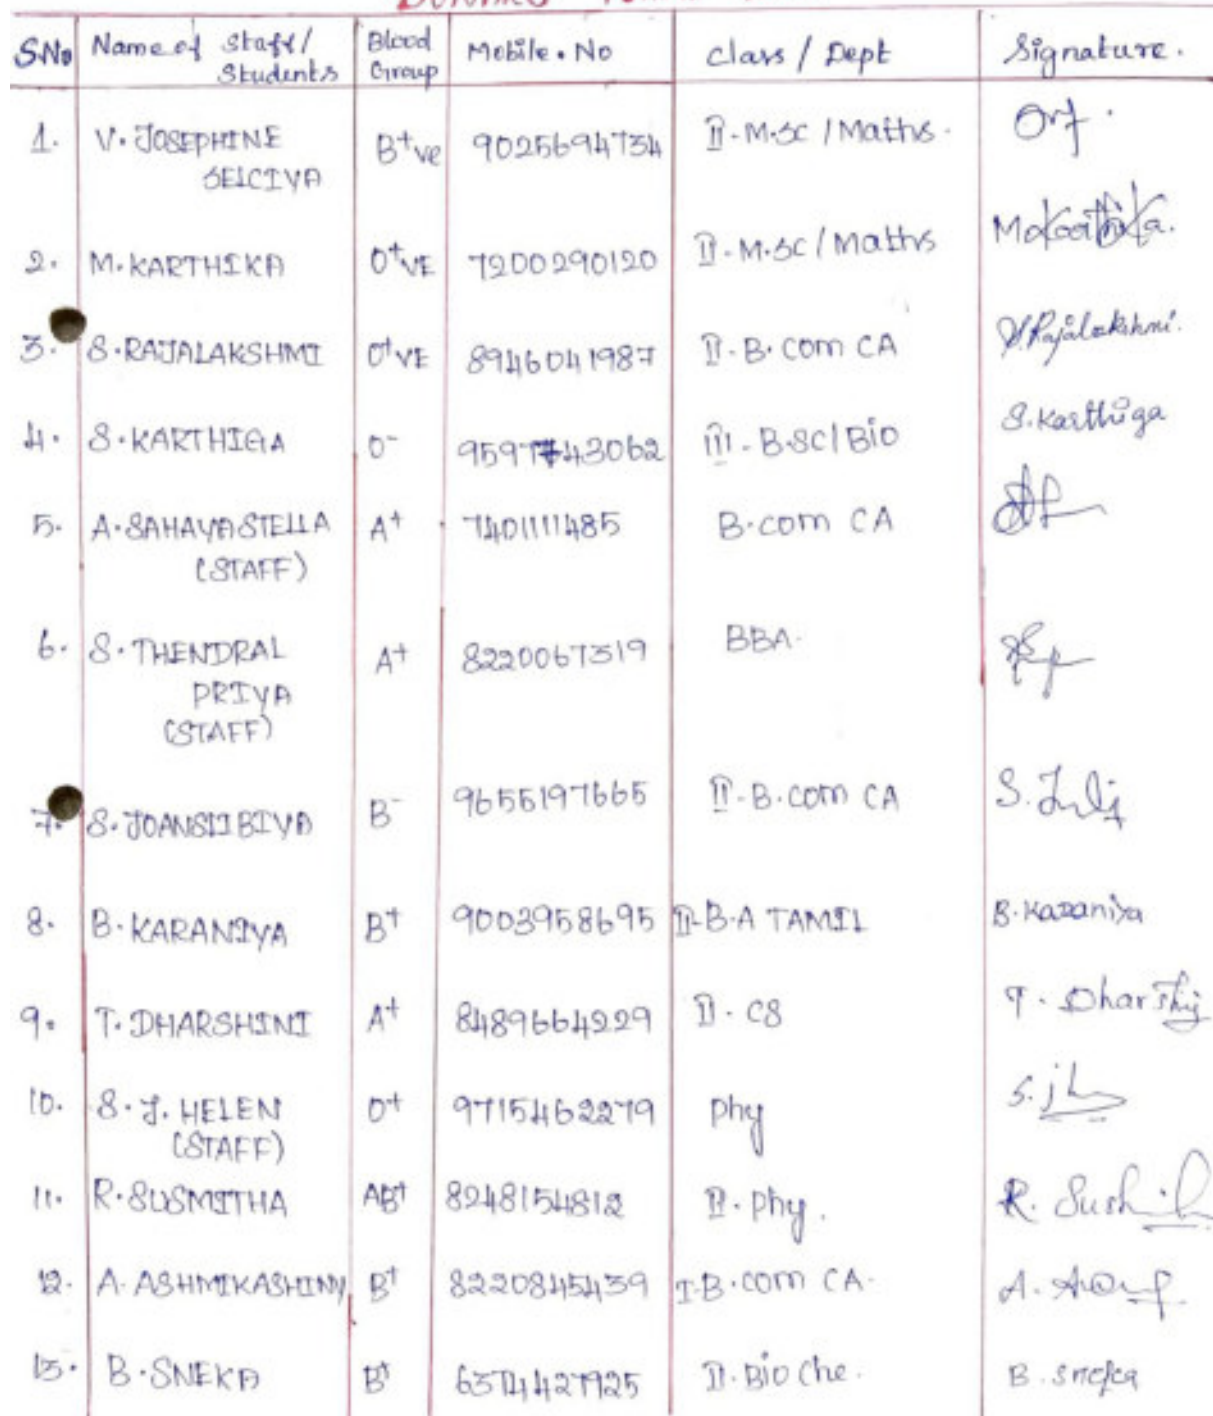 SNo Name of Staff/ Students Blood Group Mobile. No Class / Dept Signature.
1. V. JOSEPHINE SELCIYA B+ve 9025694734 II - M.SC / Maths.
2. M. KARTHIKA O+VE 7200290120 II - M.SC / Maths
3. S. RAJALAKSHMI O+VE 8946041987 II - B. com CA S. Rajalakshmi.
4. S. KARTHIGA O- 9597743062 III - B.SC / BIO S. Karthiga
5. A. SAHAYA STELLA (STAFF) A+ 7401111485 B.com CA
6. S. THENDRAL PRIYA (STAFF) A+ 8220067319 BBA.
7. S. B- 9655197665 II - B.com CA S.
8. B. KARANIYA B+ 9003958695 II-B.A TAMIL B. Karaniya
9. T. DHARSHINI A+ 8489664229 II . CS T.
10. S. J. HELEN (STAFF) O+ 9715462279 Phy
11. R. SUSMITHA AB+ 8248154812 II. Phy. R.
12. A. ASHMIKASHINY B+ 8220845439 I-B.com CA. A.
13. B. SNEKA B+ 6374427925 II. Bio che. B. sneka